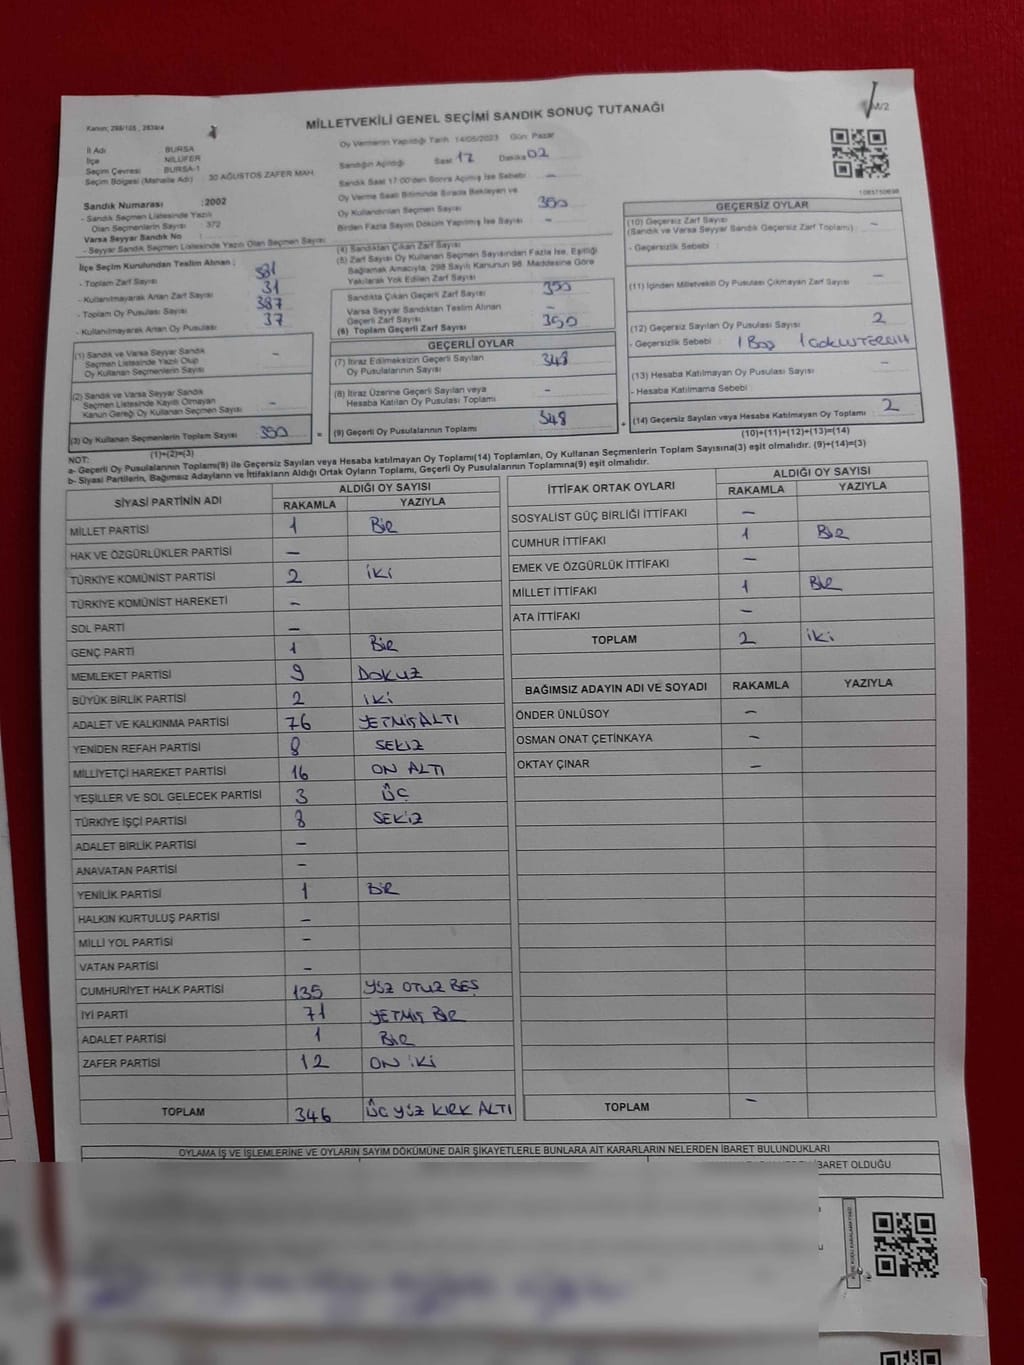 Kanun; 298/105 , 2839/4
M/2
MİLLETVEKİLİ GENEL SEÇİMİ SANDIK SONUÇ TUTANAĞI
İl Adı BURSA
İlçe NİLÜFER
Seçim Çevresi BURSA-1
Seçim Bölgesi (Mahalle Adı) : 30 AĞUSTOS ZAFER MAH.
Sandık Numarası :2002
- Sandık Seçmen Listesinde Yazılı
Olan Seçmenlerin Sayısı : 372
Varsa Seyyar Sandık No :
- Seyyar Sandık Seçmen Listesinde Yazılı Olan Seçmen Sayısı
Oy Vermenin Yapıldığı Tarih 14/05/2023 Gün: Pazar
Sandığın Açıldığı Saat 17 Dakika 02
Sandık Saat 17:00'den Sonra Açılmış İse Sebebi : -
Oy Verme Saati Bitiminde Sırada Bekleyen ve
Oy Kullandırılan Seçmen Sayısı 350
Birden Fazla Sayım Döküm Yapılmış İse Sayısı -
İlçe Seçim Kurulundan Teslim Alınan ;
- Toplam Zarf Sayısı 381
- Kullanılmayarak Artan Zarf Sayısı 31
- Toplam Oy Pusulası Sayısı 387
- Kullanılmayarak Artan Oy Pusulası 37
(1) Sandık ve Varsa Seyyar Sandık
Seçmen Listesinde Yazılı Olup
Oy Kullanan Seçmenlerin Sayısı -
(2) Sandık ve Varsa Seyyar Sandık
Seçmen Listesinde Kayıtlı Olmayan
Kanun Gereği Oy Kullanan Seçmen Sayısı -
(3) Oy Kullanan Seçmenlerin Toplam Sayısı 350
(1)+(2)=(3)
(4) Sandıktan Çıkan Zarf Sayısı
(5) Zarf Sayısı Oy Kullanan Seçmen Sayısından Fazla İse, Eşitliği
Sağlamak Amacıyla, 298 Sayılı Kanunun 98. Maddesine Göre
Yakılarak Yok Edilen Zarf Sayısı
Sandıkta Çıkan Geçerli Zarf Sayısı 350
Varsa Seyyar Sandıktan Teslim Alınan
Geçerli Zarf Sayısı -
(6) Toplam Geçerli Zarf Sayısı 350
GEÇERLİ OYLAR
(7) İtiraz Edilmeksizin Geçerli Sayılan
Oy Pusulalarının Sayısı 348
(8) İtiraz Üzerine Geçerli Sayılan veya
Hesaba Katılan Oy Pusulası Toplamı -
(9) Geçerli Oy Pusulalarının Toplamı 348
GEÇERSİZ OYLAR
(10) Geçersiz Zarf Sayısı
(Sandık ve Varsa Seyyar Sandık Geçersiz Zarf Toplamı) : -
- Geçersizlik Sebebi :
(11) İçinden Milletvekili Oy Pusulası Çıkmayan Zarf Sayısı -
(12) Geçersiz Sayılan Oy Pusulası Sayısı 2
- Geçersizlik Sebebi : 1 BOŞ
(13) Hesaba Katılmayan Oy Pusulası Sayısı -
- Hesaba Katılmama Sebebi :
(14) Geçersiz Sayılan veya Hesaba Katılmayan Oy Toplamı 2
(10)+(11)+(12)+(13)=(14)
NOT:
a- Geçerli Oy Pusulalarının Toplamı(9) ile Geçersiz Sayılan veya Hesaba katılmayan Oy Toplamı(14) Toplamları, Oy Kullanan Seçmenlerin Toplam Sayısına(3) eşit olmalıdır. (9)+(14)=(3)
b- Siyasi Partilerin, Bağımsız Adayların ve İttifakların Aldığı Ortak Oyların Toplamı, Geçerli Oy Pusulalarının Toplamına(9) eşit olmalıdır.
SİYASİ PARTİNİN ADI ALDIĞI OY SAYISI
RAKAMLA YAZIYLA
MİLLET PARTİSİ 1 BİR
HAK VE ÖZGÜRLÜKLER PARTİSİ -
TÜRKİYE KOMÜNİST PARTİSİ 2 İKİ
TÜRKİYE KOMÜNİST HAREKETİ -
SOL PARTİ -
GENÇ PARTİ 1 BİR
MEMLEKET PARTİSİ 9 DOKUZ
BÜYÜK BİRLİK PARTİSİ 2 İKİ
ADALET VE KALKINMA PARTİSİ 76 YETMİŞ ALTI
YENİDEN REFAH PARTİSİ 8 SEKİZ
MİLLİYETÇİ HAREKET PARTİSİ 16 ON ALTI
YEŞİLLER VE SOL GELECEK PARTİSİ 3 ÜÇ
TÜRKİYE İŞÇİ PARTİSİ 8 SEKİZ
ADALET BİRLİK PARTİSİ -
ANAVATAN PARTİSİ -
YENİLİK PARTİSİ 1 BİR
HALKIN KURTULUŞ PARTİSİ -
MİLLİ YOL PARTİSİ -
VATAN PARTİSİ -
CUMHURİYET HALK PARTİSİ 135 YÜZ OTUZ BEŞ
İYİ PARTİ 71 YETMİŞ BİR
ADALET PARTİSİ 1 BİR
ZAFER PARTİSİ 12 ON İKİ
TOPLAM 346 ÜÇ YÜZ KIRK ALTI
İTTİFAK ORTAK OYLARI ALDIĞI OY SAYISI
RAKAMLA YAZIYLA
SOSYALİST GÜÇ BİRLİĞİ İTTİFAKI -
CUMHUR İTTİFAKI 1 BİR
EMEK VE ÖZGÜRLÜK İTTİFAKI -
MİLLET İTTİFAKI 1 BİR
ATA İTTİFAKI -
TOPLAM 2 İKİ
BAĞIMSIZ ADAYIN ADI VE SOYADI RAKAMLA YAZIYLA
ÖNDER ÜNLÜSOY -
OSMAN ONAT ÇETİNKAYA -
OKTAY ÇINAR -
TOPLAM -
OYLAMA İŞ VE İŞLEMLERİNE VE OYLARIN SAYIM DÖKÜMÜNE DAİR ŞİKAYETLERLE BUNLARA AİT KARARLARIN NELERDEN İBARET BULUNDUKLARI
İBARET OLDUĞU